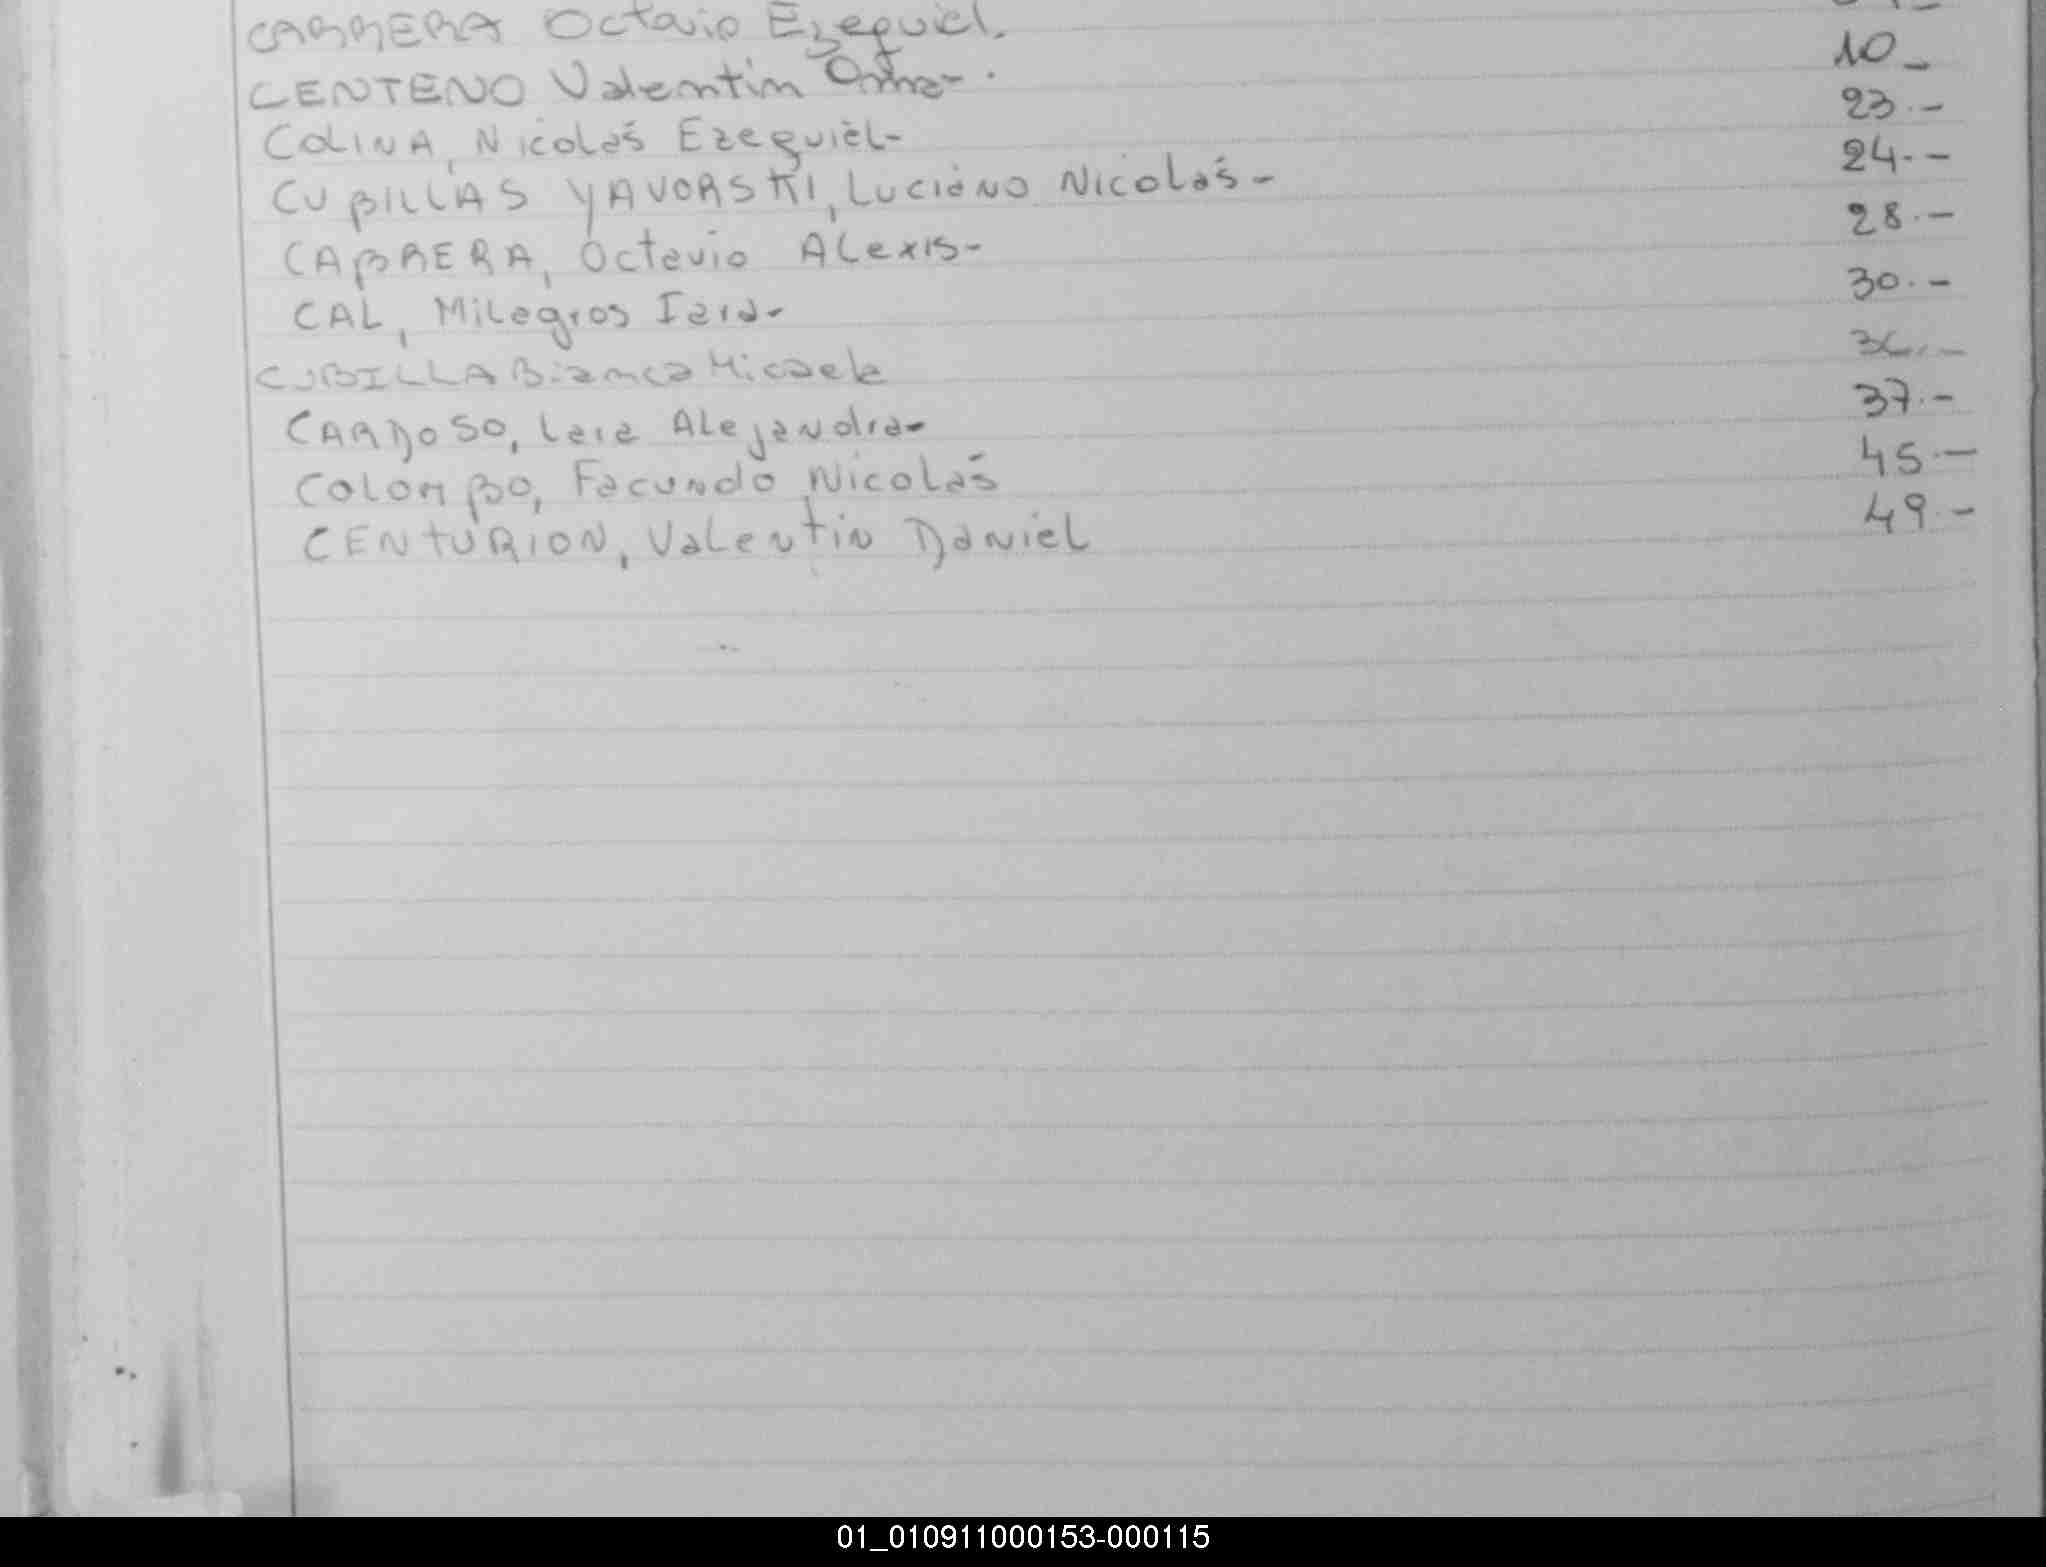 CABRERA Octavio Ezequiel.
CENTENO Valentin Omar. 10_
COLINA, Nicolás Ezequiel- 23.-
CUBILLAS YAVORSKI, Luciano Nicolás- 24.-
CABRERA, Octavio Alexis- 28.-
CAL, Milagros Iara- 30.-
CUBILLA Bianca Micaela
CARDOSO, Lara Alejandra- 37.-
COLOMBO, Facundo Nicolás 45.-
CENTURION, Valentin Daniel 49.-
01_010911000153-000115